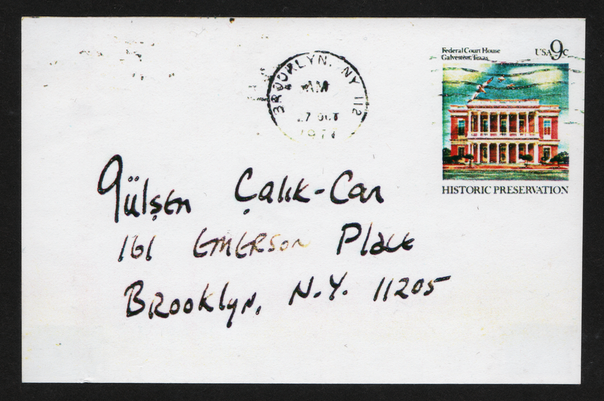 Federal Court House
Galveston, Texas
USA 9c
BROOKLYN, NY 112
AM
27 OCT
HISTORIC PRESERVATION
Gülşen Çalık-Can
161 EMERSON Place
Brooklyn, N.Y. 11205